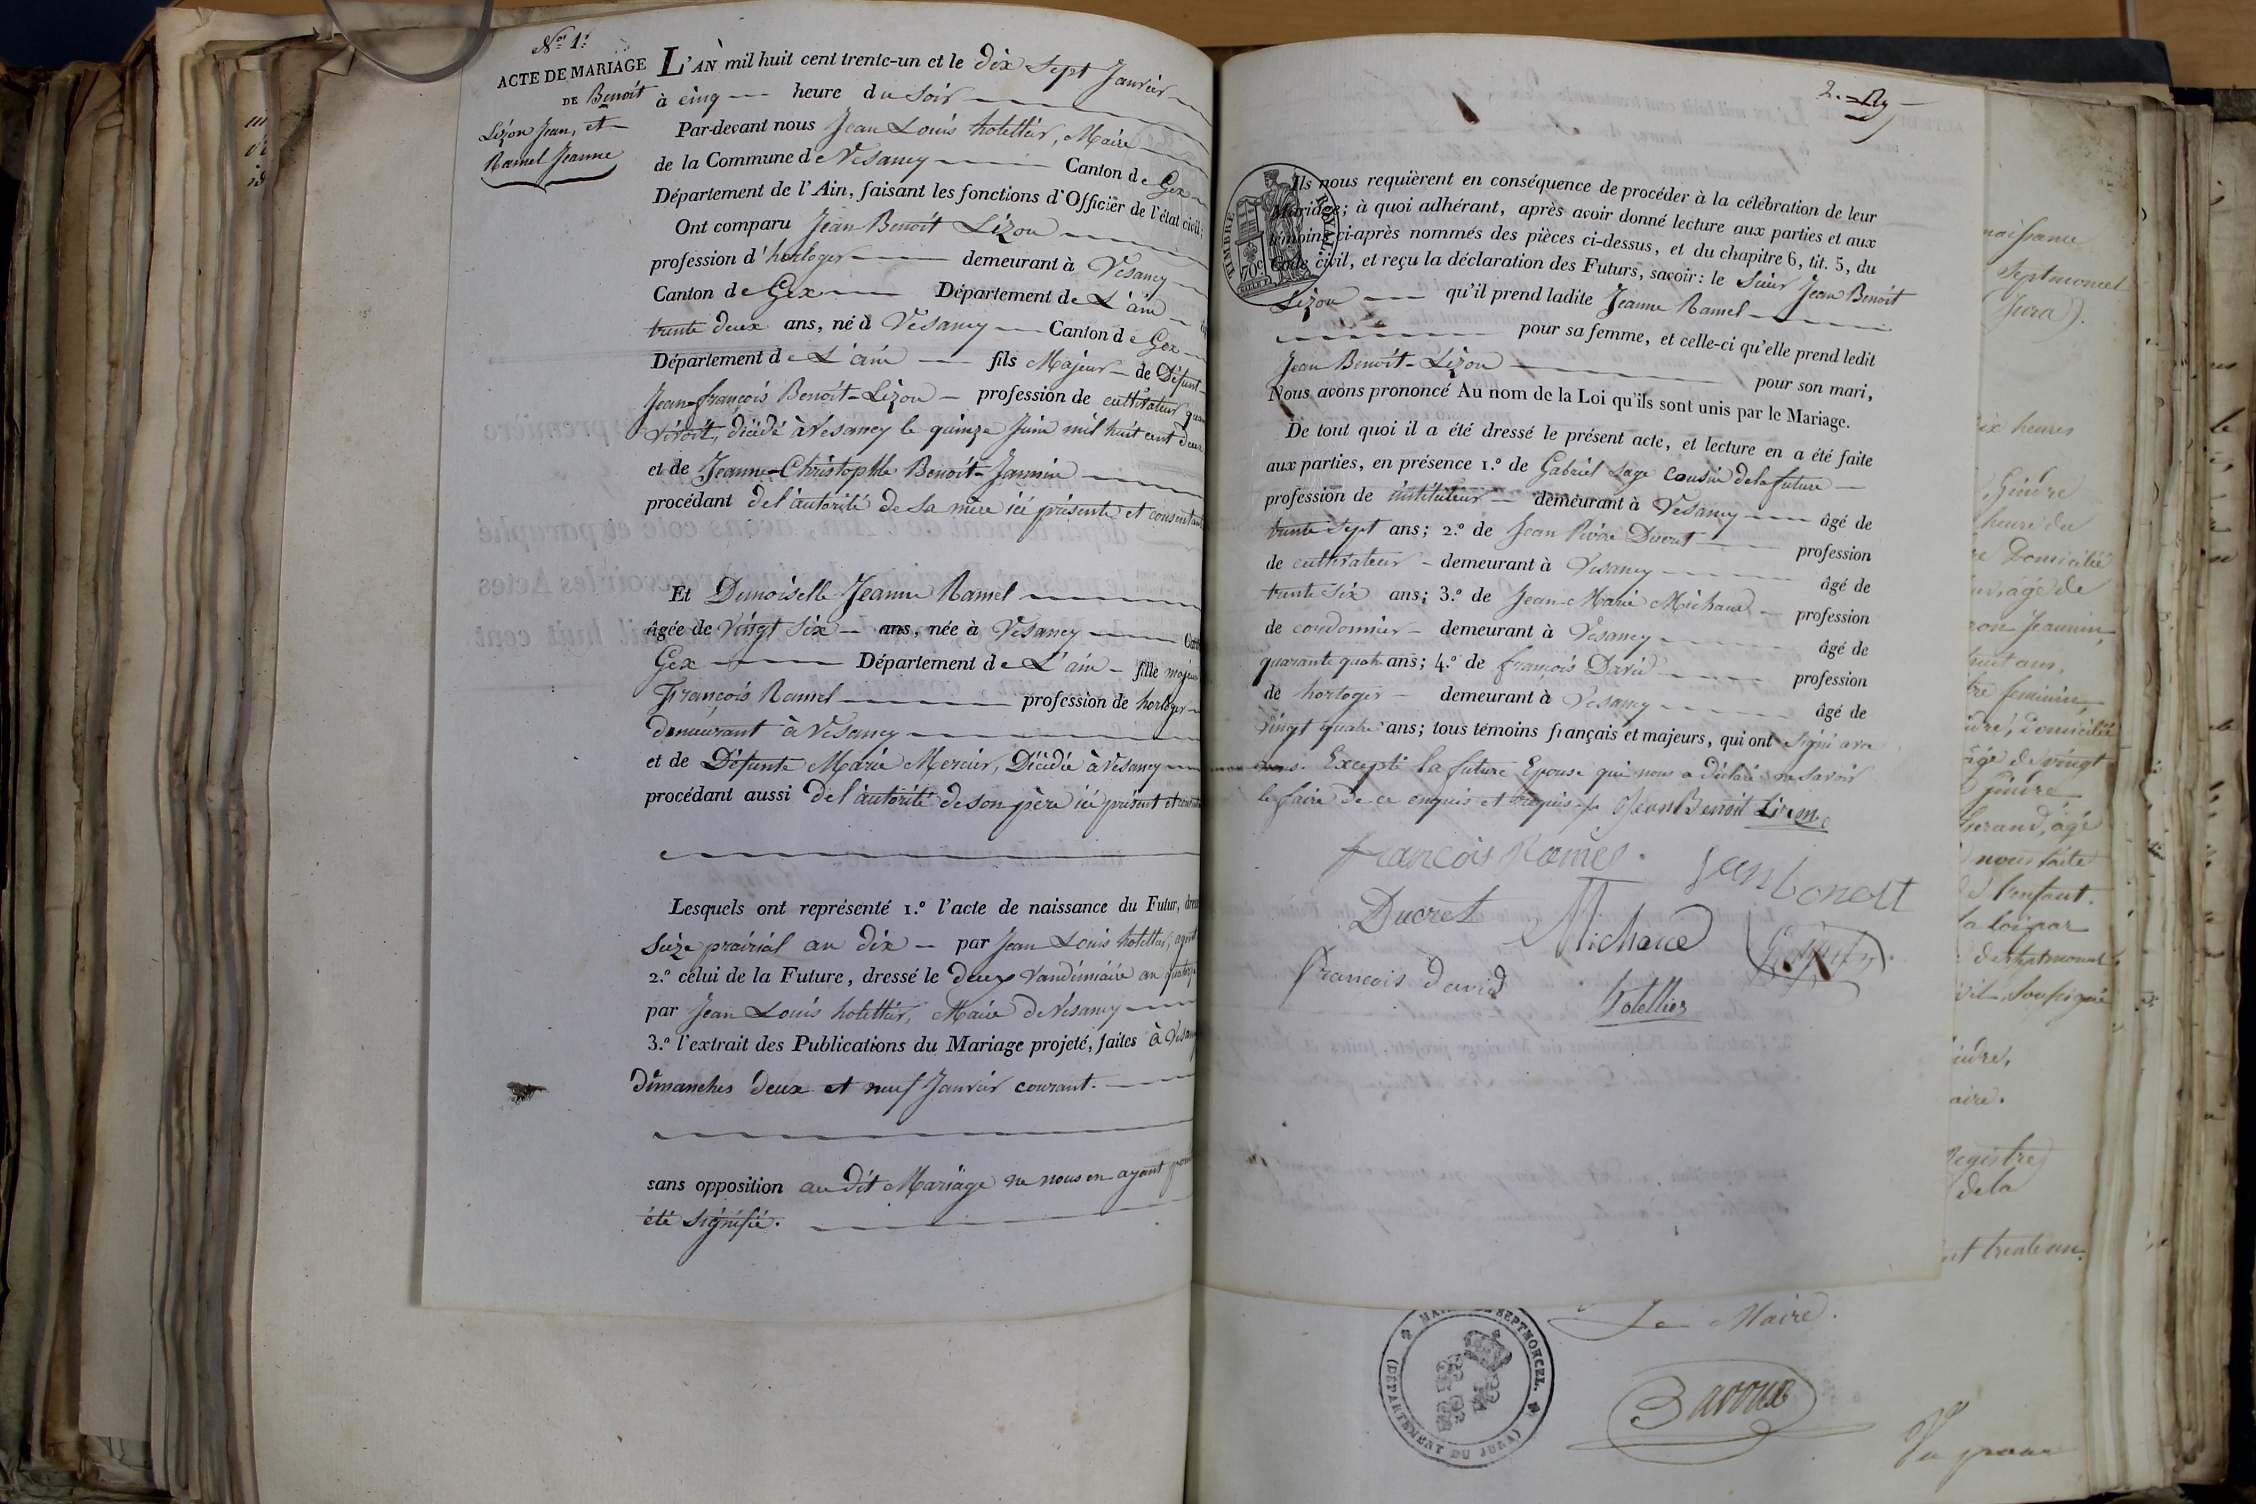 N.º 1.
ACTE DE MARIAGE
DE Benoit
Lizon Jean, et
Ramel Jeanne
L'AN mil huit cent trente-un et le dix sept Janvier
à cinq heure du soir
Par-devant nous Jean Louis hotellier, Maire
de la Commune de Vesancy Canton de Gex
Département de l'Ain, faisant les fonctions d'Officier de l'état civil;
Ont comparu Jean Benoit Lizon
profession d'horloger demeurant à Vesancy
Canton de Gex Département de L'ain
trente deux ans, né à Vesancy Canton de Gex
Département de L'ain fils Majeur de Défunt
Jean-françois Benoit-Lizon profession de cultivateur quan
vivoit, décédé à Vesancy le quinze Juin mil huit cent deux
et de Jeanne-Christophle Benoit-Jannin
procédant de l'autorité de sa mère ici présente et consentant
Et Demoiselle Jeanne Ramel
âgée de vingt six ans, née à Vesancy Cant
Gex Département de L'ain fille majeu
François Ramel profession de horloger
demeurant à Vesancy
et de Défunte Marie Mercier, Décédée à Vesancy
procédant aussi de l'autorité de son père ici présent et
Lesquels ont représenté 1.º l'acte de naissance du Futur, dres
seize prairial an dix par Jean Louis hotellier,
2.º celui de la Future, dressé le deux vandémiaire an
par Jean Louis hotellier, Maire de Vesancy
3.º l'extrait des Publications du Mariage projeté, faites à Vesan
dimanches deux et neuf Janvier courant.
sans opposition au dit Mariage ne nous en ayant
été signifié.
2.
TIMBRE ROYAL
70c
Ils nous requièrent en conséquence de procéder à la célébration de leur
Mariage; à quoi adhérant, après avoir donné lecture aux parties et aux
témoins ci-après nommés des pièces ci-dessus, et du chapitre 6, tit. 5, du
Code civil, et reçu la déclaration des Futurs, savoir: le sieur Jean Benoit
Lizon qu'il prend ladite Jeanne Ramel
pour sa femme, et celle-ci qu'elle prend ledit
Jean Benoit-Lizon pour son mari,
Nous avons prononcé Au nom de la Loi qu'ils sont unis par le Mariage.
De tout quoi il a été dressé le présent acte, et lecture en a été faite
aux parties, en présence 1.º de Gabriel Sage Cousin de la future
profession de instituteur demeurant à Vesancy âgé de
trente sept ans; 2.º de Jean Pierre Ducret profession
de cultivateur demeurant à Vesancy âgé de
trente six ans; 3.º de Jean-Marie Michaud profession
de cordonnier demeurant à Vesancy âgé de
quarante quatre ans; 4.º de françois David profession
de horloger demeurant à Vesancy âgé de
vingt quatre ans; tous témoins français et majeurs, qui ont signé avec
nous. Excepté la future Epouse qui nous a déclaré ne savoir
le faire de ce enquis et requise Jean Benoit Lizon
françois Ramel Jean benoit
Ducret Michaud
francois david hotellier
naissance
Septmoncel
(Jura).
heures
heure du
Domicilié
âgé de
Jeannin,
feminin,
domicilié
agé de vingt
agé
nous faite
l'enfant.
la loi par
soussigné
aire.
Registre
de la
cent trente un.
MAIRIE DE SEPTMONCEL.
(DÉPARTEMENT DU JURA)
Le Maire.
Bavoux
Vu pour